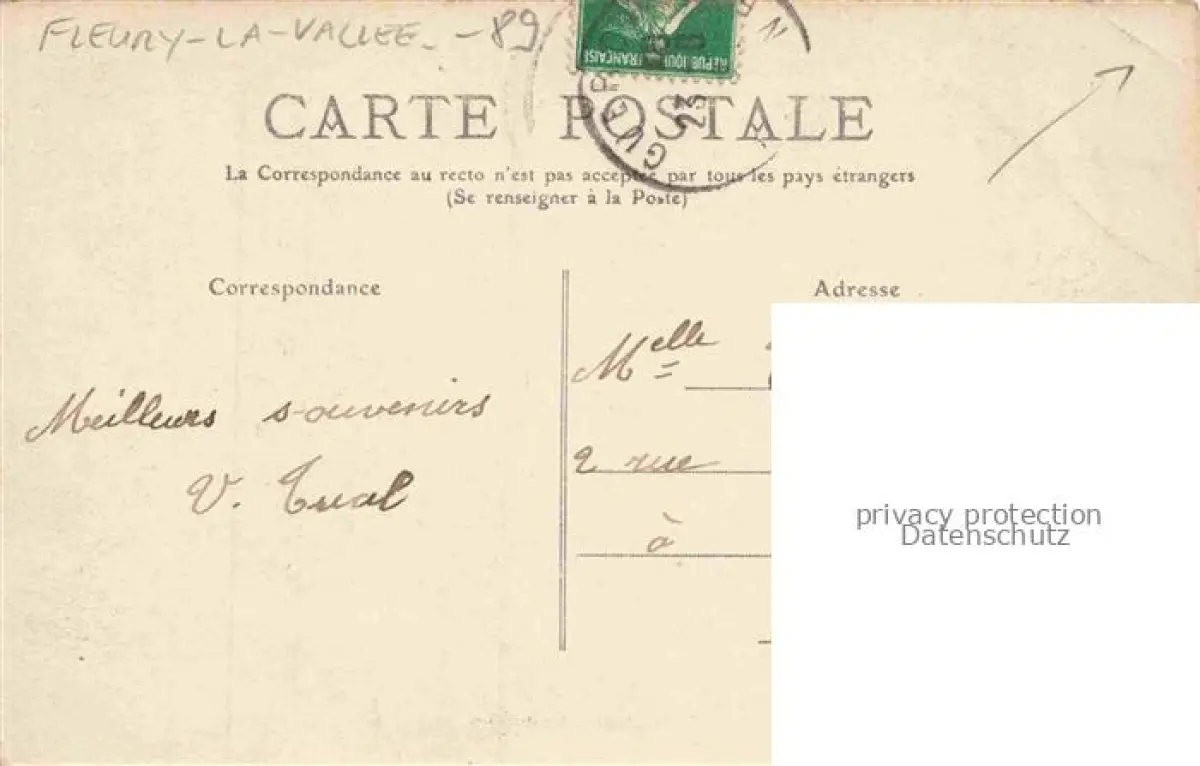 FLEURY-LA-VALLEE - 89
REPUBLIQUE FRANÇAISE
GUER
23
11
CARTE POSTALE
La Correspondance au recto n'est pas acceptée par tous les pays étrangers
(Se renseigner à la Poste)
Correspondance
Adresse
Melle
Meilleurs souvenirs
2 rue
V. Tual
à
privacy protection
Datenschutz